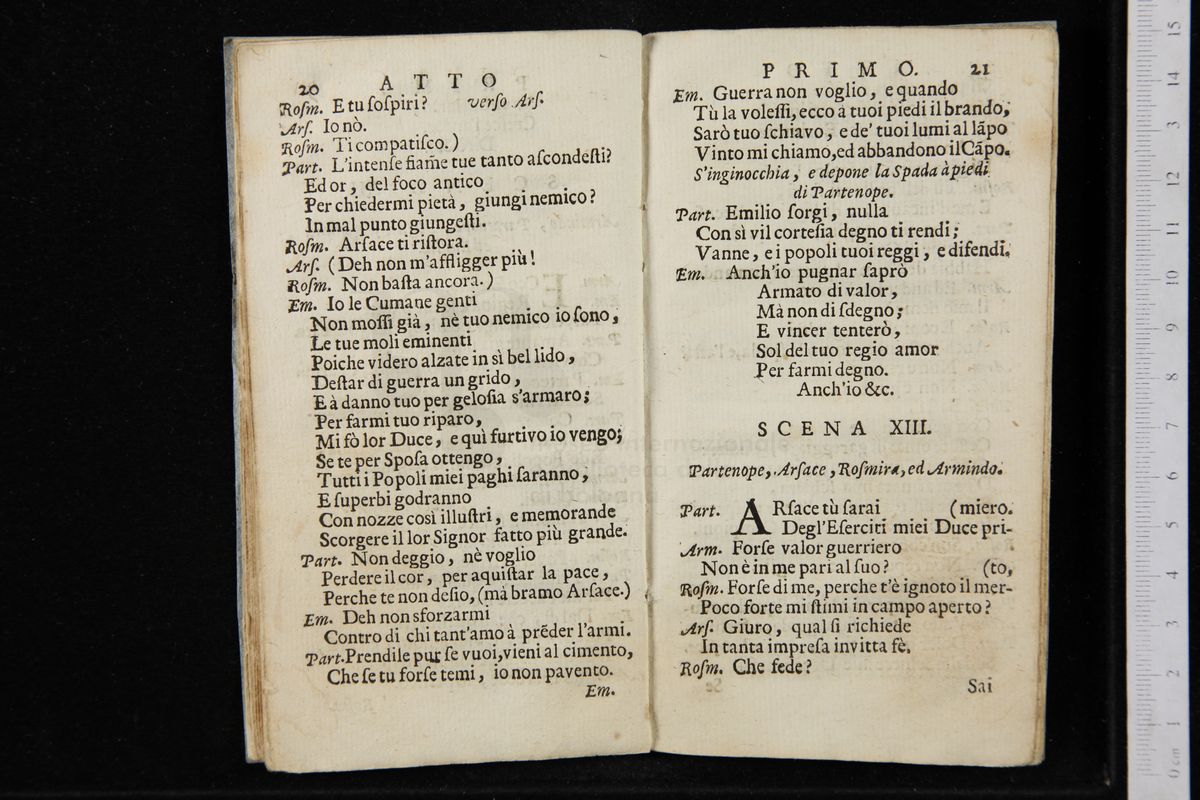 20 ATTO
Roſm. E tu ſoſpiri? verſo Arſ.
Arſ. Io nò.
Roſm. Ti compatiſco.)
Part. L'intenſe fiam̃e tue tanto aſcondeſti?
Ed or, del foco antico
Per chiedermi pietà, giungi nemico?
In mal punto giungeſti.
Roſm. Arſace ti riſtora.
Arſ. (Deh non m'affligger più!
Roſm. Non baſta ancora.)
Em. Io le Cumane genti
Non moſſi già, nè tuo nemico io ſono,
Le tue moli eminenti
Poiche videro alzate in sì bel lido,
Deſtar di guerra un grido,
E à danno tuo per geloſia s'armaro;
Per farmi tuo riparo,
Mi fò lor Duce, e quì furtivo io vengo;
Se te per Spoſa ottengo,
Tutti i Popoli miei paghi ſaranno,
E ſuperbi godranno
Con nozze così illuſtri, e memorande
Scorgere il lor Signor fatto più grande.
Part. Non deggio, nè voglio
Perdere il cor, per aquiſtar la pace,
Perche te non deſio, (mà bramo Arſace.)
Em. Deh non sforzarmi
Contro di chi tant'amo à prẽder l'armi.
Part. Prendile pur ſe vuoi, vieni al cimento,
Che ſe tu forſe temi, io non pavento.
Em.
PRIMO. 21
Em. Guerra non voglio, e quando
Tù la voleſſi, ecco à tuoi piedi il brando,
Sarò tuo ſchiavo, e de' tuoi lumi al lãpo
Vinto mi chiamo, ed abbandono il Cãpo.
S'inginocchia, e depone la Spada à piedi
di Partenope.
Part. Emilio ſorgi, nulla
Con sì vil corteſia degno ti rendi;
Vanne, e i popoli tuoi reggi, e difendi.
Em. Anch'io pugnar ſaprò
Armato di valor,
Mà non di ſdegno;
E vincer tenterò,
Sol del tuo regio amor
Per farmi degno.
Anch'io &c.
SCENA XIII.
Partenope, Arſace, Roſmira, ed Armindo.
Part. ARſace tù ſarai (miero.
Degl'Eſerciti miei Duce pri-
Arm. Forſe valor guerriero
Non è in me pari al ſuo? (to,
Roſm. Forſe di me, perche t'è ignoto il mer-
Poco forte mi ſtimi in campo aperto?
Arſ. Giuro, qual ſi richiede
In tanta impreſa invitta fè.
Roſm. Che fede?
Sai